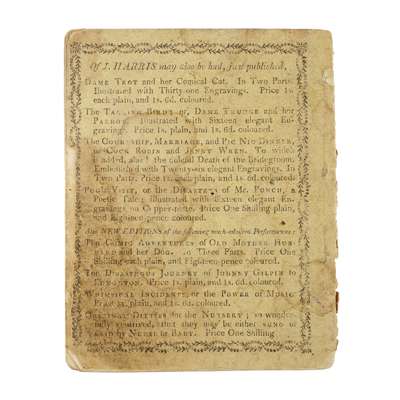 Of J. HARRIS may also be had, just published,
DAME TROT and her Comical Cat. In Two Parts.
Illustrated with Thirty-one Engravings. Price 1s.
each plain, and 1s. 6d. coloured.
The TALKING BIRDS or, DAME TRUDGE and her
PARROT. Illustrated with Sixteen elegant En-
gravings. Price 1s. plain, and 1s. 6d. coloured.
The COURTSHIP, MARRIAGE, and PIC NIC DINNER,
of COCK ROBIN and JENNY WREN. To which
is added, alas! the doleful Death of the Bridegroom.
Embellished with Twenty-six elegant Engravings. In
Two Parts. Price 1s. each plain, and 1s. 6d. coloured.
VISIT, or the DISASTERS of Mr. PUNCH, a
Poetic Tale; illustrated with Sixteen elegant En-
gravings, on Copper-plate. Price One Shilling plain,
and Eighteen-pence coloured.
Also NEW EDITIONS of the following much-admired Performances:
The COMIC ADVENTURES of OLD MOTHER HUB-
BARD and her DOG. In Three Parts. Price One
Shilling each plain, and Eighteen-pence coloured.
The DISASTROUS JOURNEY of JOHNNY GILPIN to
EDMONTON. Price 1s. plain, and 1s. 6d. coloured.
WHIMSICAL INCIDENTS, or the POWER of MUSIC.
Price 1s. plain, and 1s. 6d. coloured.
ORIGINAL DITTIES for the NURSERY; so wonder-
fully contrived, that they may be either SUNG or
SAID by NURSE or BABY. Price One Shilling